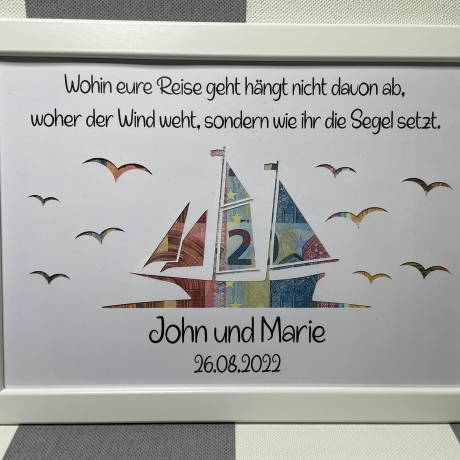 Wohin eure Reise geht hängt nicht davon ab,
woher der Wind weht, sondern wie ihr die Segel setzt.
2
John und Marie
26.08.2022